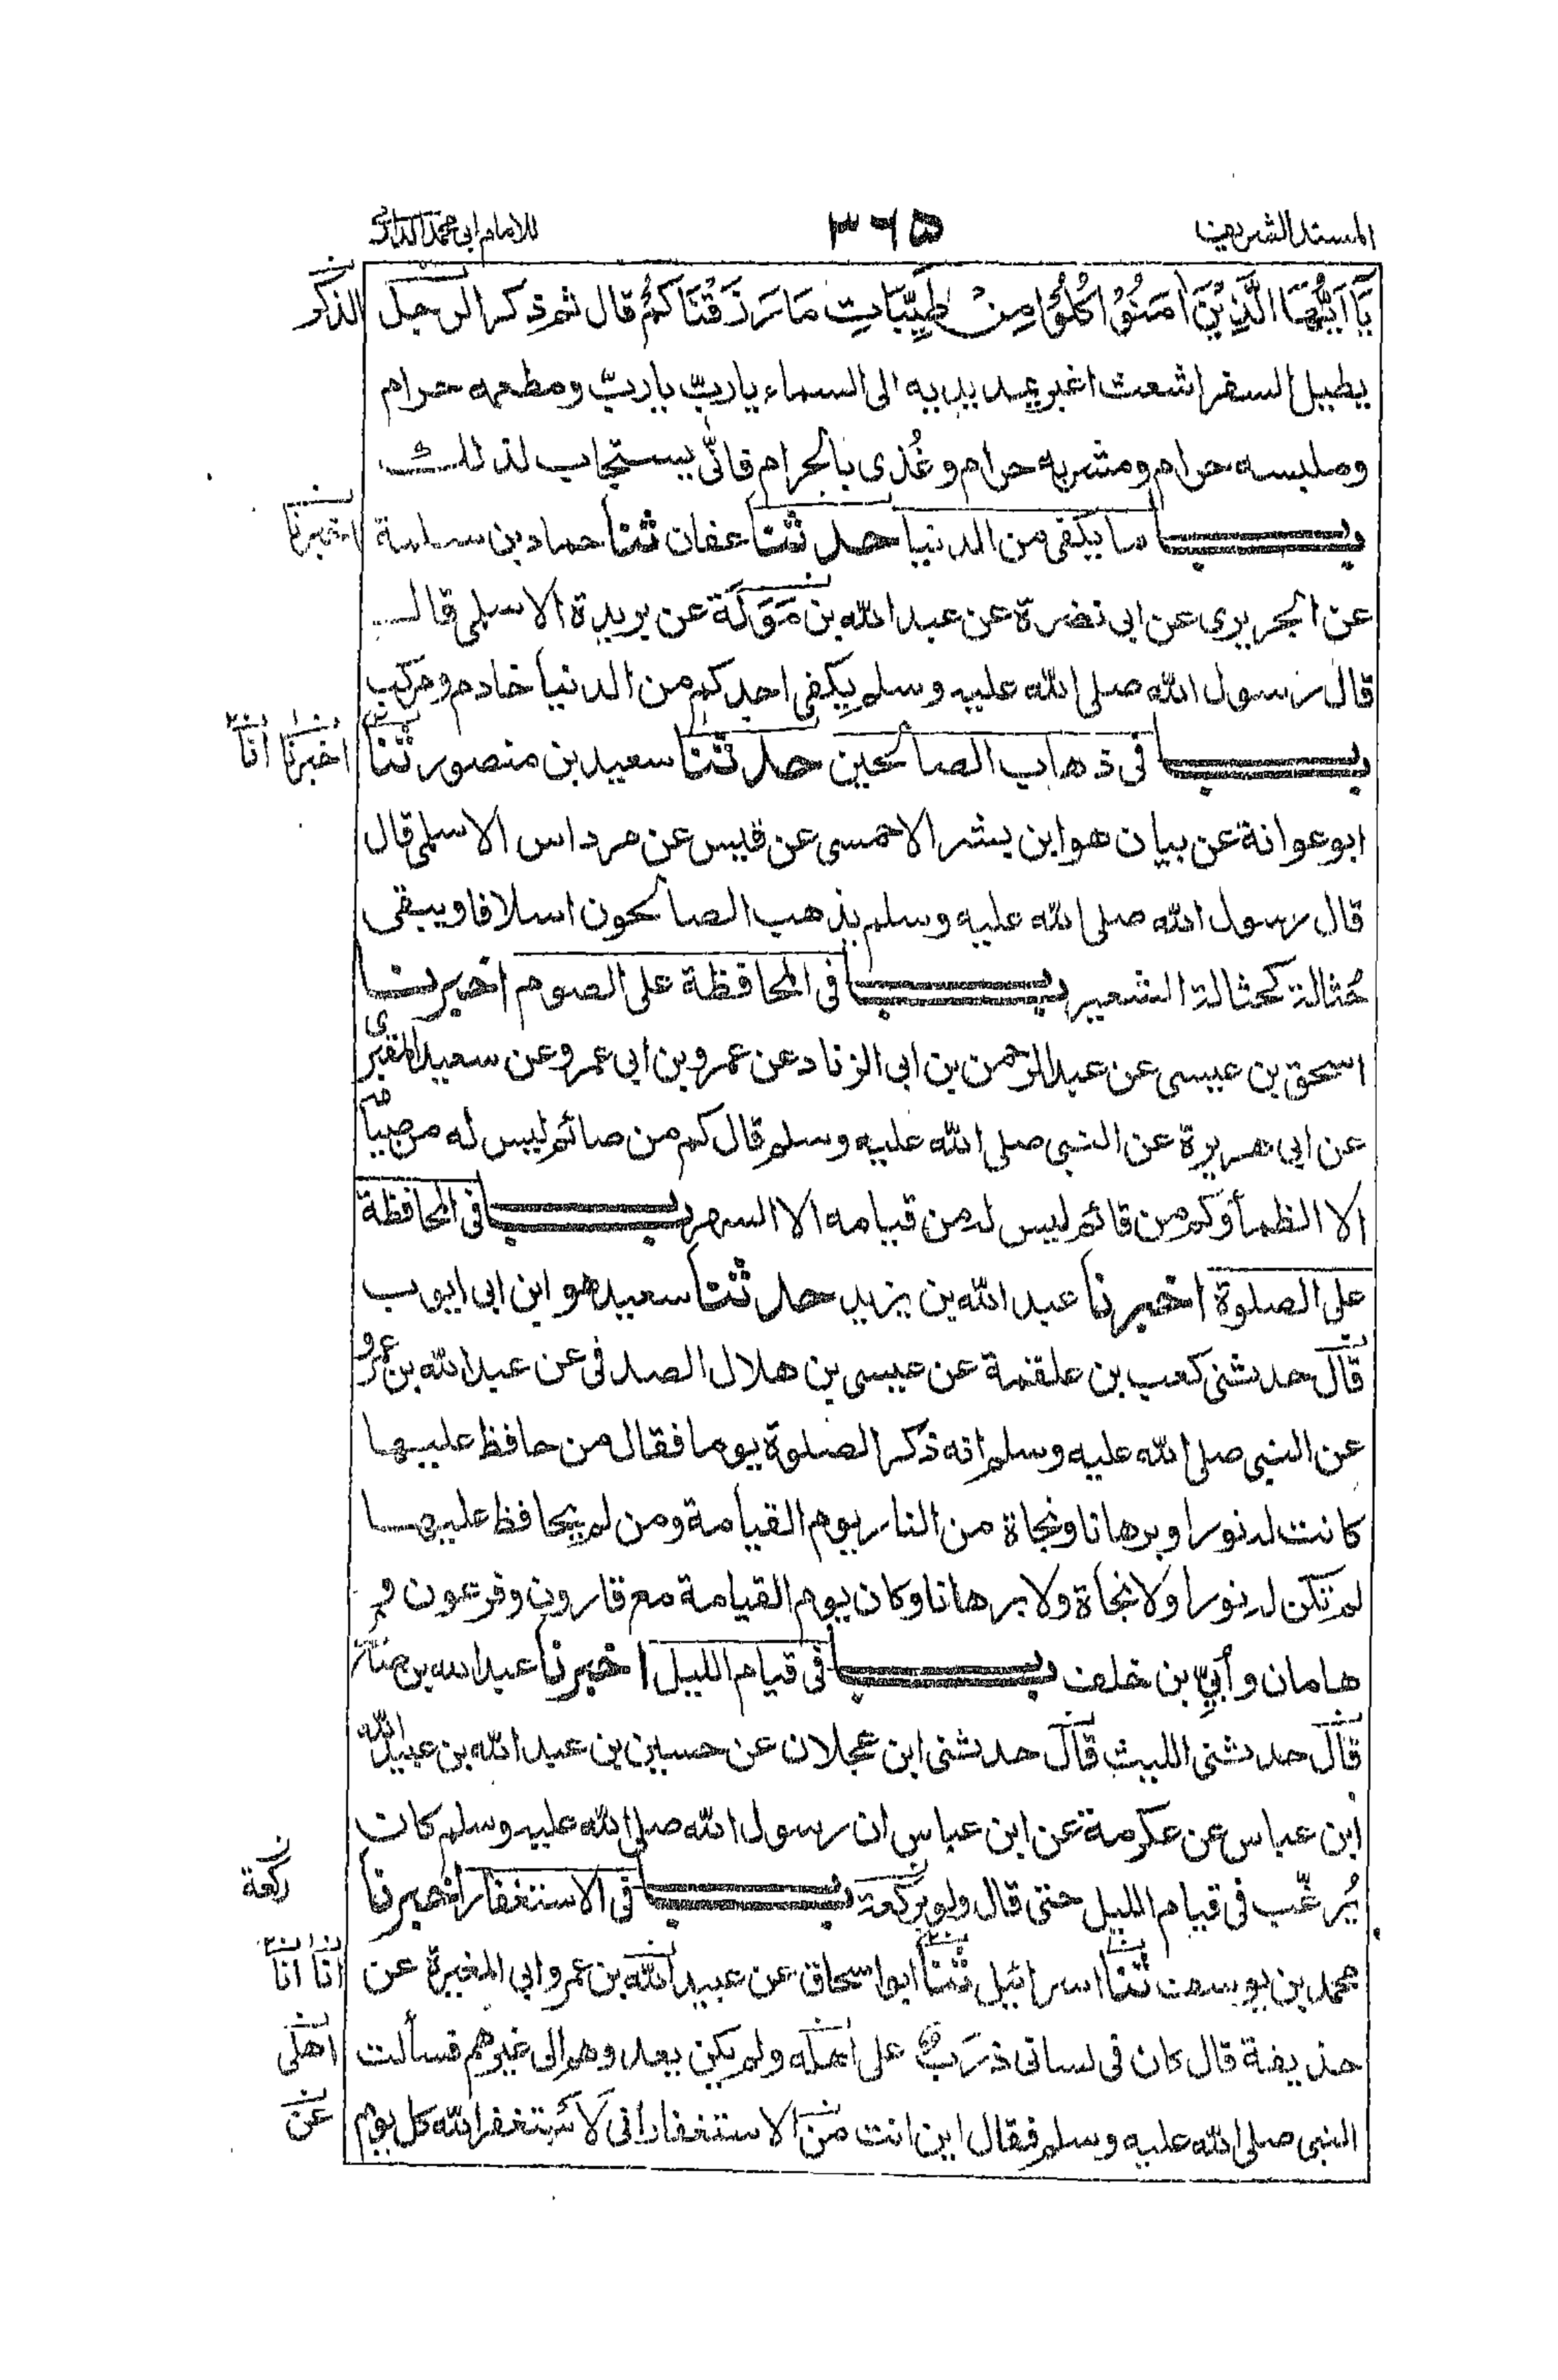 المسند الشريف ٣٦٥ للامام ابى محمد الدارمى
يَا اَيُّهَا الَّذِيْنَ اٰمَنُوْا كُلُوْا مِنْ طَيِّبَاتِ مَا رَزَقْنَاكُمْ قال ثم ذكر الرجل الذكر
يطيل السفر اشعث اغبر يمد يديه الى السماء يا ربّ يا ربّ ومطعمه حرام
وملبسه حرام ومشربه حرام وغُذى بالحرام فانّى يستجاب لذلك
باب ما يكفى من الدنيا حدثنا عفان ثنا حماد بن سلمة اخبرنا
عن الجريرى عن ابى نضرة عن عبد الله بن مَوَلَة عن بريدة الاسلمى قال
قال رسول الله صلى الله عليه وسلم يكفى احدكم من الدنيا خادم ومركب
باب فى ذهاب الصالحين حدثنا سعيد بن منصور ثنا اخبرنا انا
ابو عوانة عن بيان هو ابن بشر الاحمسى عن قيس عن مرداس الاسلمى قال
قال رسول الله صلى الله عليه وسلم يذهب الصالحون اسلافا ويبقى
حُثالة كحثالة الشعير باب فى المحافظة على الصوم اخبرنا
اسحق بن عيسى عن عبد الرحمن بن ابى الزناد عن عمرو بن ابى عمرو عن سعيد المقبرى
عن ابى هريرة عن النبى صلى الله عليه وسلم قال كم من صائم ليس له من صيامه
الا الظمأ وكم من قائم ليس له من قيامه الا السهر باب فى المحافظة
على الصلوة اخبرنا عبد الله بن يزيد حدثنا سعيد هو ابن ابى ايوب
قال حدثنى كعب بن علقمة عن عيسى بن هلال الصدفى عن عبد الله بن عمرو
عن النبى صلى الله عليه وسلم انه ذكر الصلوة يوما فقال من حافظ عليها
كانت له نورا وبرهانا ونجاة من النار يوم القيامة ومن لم يحافظ عليها
لم تكن له نورا ولا نجاة ولا برهانا وكان يوم القيامة مع قارون وفرعون و
هامان وأبيّ بن خلف باب فى قيام الليل اخبرنا عبد الله بن صالح
قال حدثنى الليث قال حدثنى ابن عجلان عن حسين بن عبد الله بن عبيد الله
ابن عباس عن عكرمة عن ابن عباس ان رسول الله صلى الله عليه وسلم كان
يُرغّب فى قيام الليل حتى قال ولو بركعة باب فى الاستغفار اخبرنا ركعة
محمد بن يوسف ثنا اسرائيل ثنا ابو اسحاق عن عبيد الله بن عمرو ابى المغيرة عن انا انا
حذيفة قال كان فى لسانى ذرَبٌ على اهله ولم يكن يعد وهم الى غيرهم فسألت اهلى
النبى صلى الله عليه وسلم فقال اين انت من الاستغفار انى لاَستغفر الله كل يوم عن